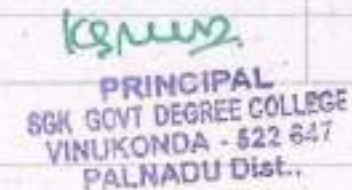 PRINCIPAL
SGK GOVT DEGREE COLLEGE
VINUKONDA - 522 647
PALNADU Dist..